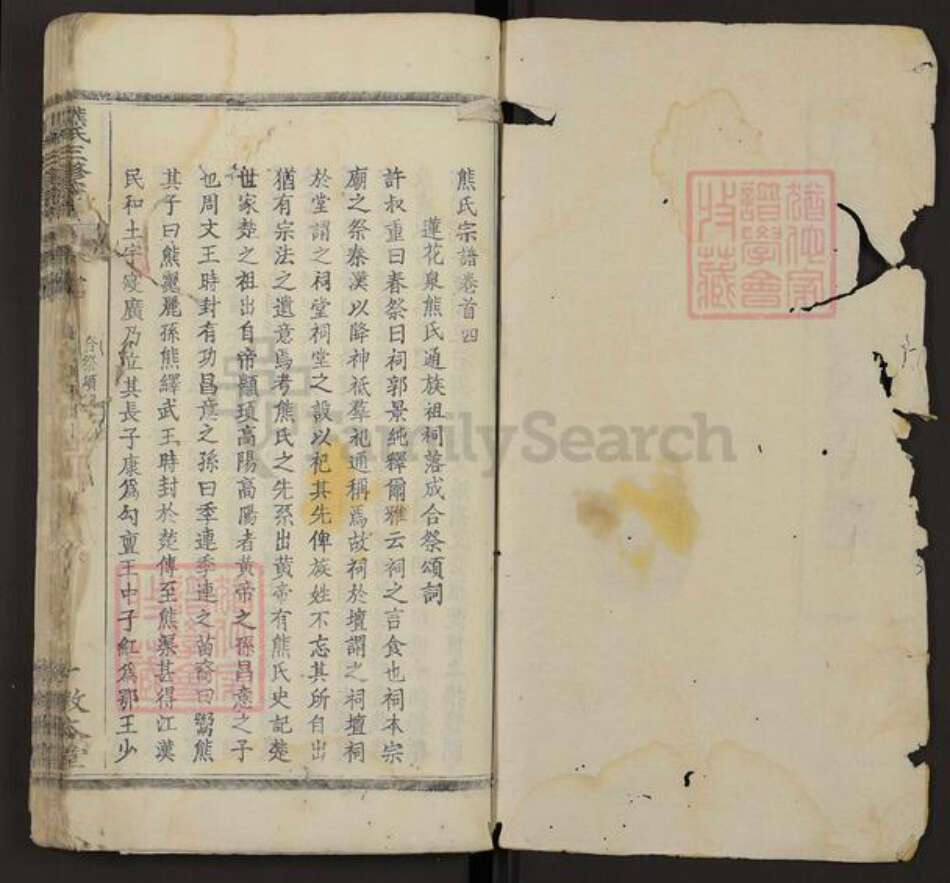 熊氏宗譜卷首四
蓮花泉熊氏通族祖祠落成合祭頌詞
許叔重曰春祭曰祠郭景純釋爾雅云祠之言食也祠本宗
廟之祭秦漢以降神祇羣祀通稱焉故祠於壇謂之祠壇祠
於堂謂之祠堂祠堂之設以祀其先俾族姓不忘其所自出
猶有宗法之遺意焉考熊氏之先系出黃帝有熊氏史記楚
世家楚之祖出自帝顓頊高陽高陽者黃帝之孫昌意之子
也周文王時封有功昌意之孫曰季連季連之苗裔曰鬻熊
其子曰熊麗麗孫熊繹武王時封於楚傳至熊渠甚得江漢
民和土宇廣乃立其長子康爲勾亶王中子紅爲鄂王少
熊氏三修
合祭頌
一
敦本堂
譜學會
收藏
FamilySearch